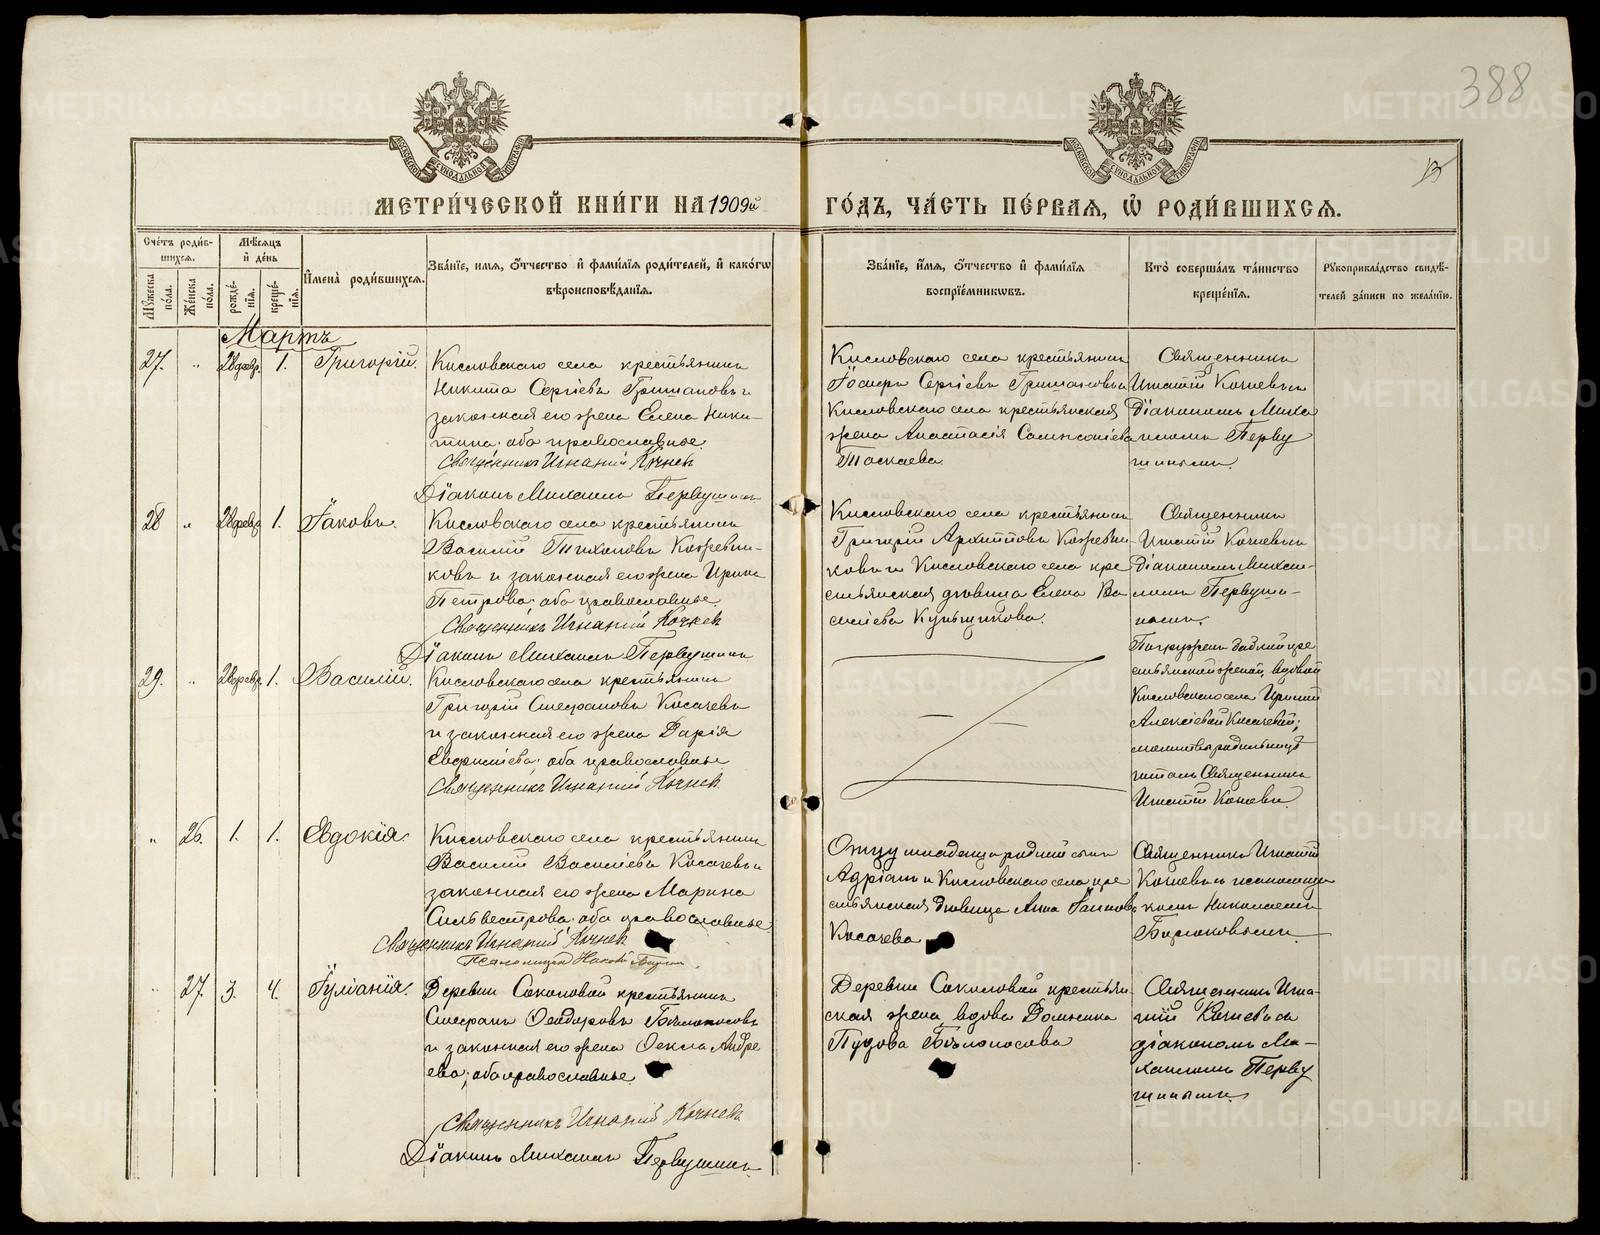 388
13
МЕТРИ́ЧЕСКОЙ КНИ́ГИ НА 1909й ГО́ДЪ, ЧА́СТЬ ПЕ́РВАЯ, Ѽ РОДИ́ВШИХСЯ.
Сче́тъ роди́вшихся.
Му́жеска по́ла.
Же́нска по́ла.
Мѣ́сяцъ и҆ де́нь
рожде́нїя.
креще́нїя.
И҆мена̀ роди́вшихся.
Зва́нїе, и҆́мя, ѻ҆́тчество и҆ фами́лїя роди́телей, и҆ како́гѡ
вѣроисповѣ́данїя.
Зва́нїе, и҆́мя, ѻ҆́тчество и҆ фами́лїя
воспрїе́мниковъ.
Кто̀ соверша́лъ та́инство
креще́нїя.
Рꙋкоприкла́дство свидѣ́-
телей за́писи по жела́нїю.
Мартъ
27. " 28 февр. 1. Григорій.
Кисловскаго села крестьянинъ
Никита Сергіевъ Гришановъ и
законная его жена Елена Ники-
тина, оба православные
Священникъ Игнатій Кочневъ
Діаконъ Михаилъ Первушинъ
Кисловскаго села крестьянинъ
Іосифъ Сергіевъ Гришановъ и
Кисловскаго села крестьянская
жена Анастасія Сампсоніева
Таскаева.
Священникъ
Игнатій Кочневъ съ
Діакономъ Миха
иломъ Перву
шинымъ.
28 " 28 февр. 1. Іаковъ.
Кисловскаго села крестьянинъ
Василій Тихоновъ Кожевни-
ковъ и законная его жена Ирина
Петрова, оба православные
Священникъ Игнатій Кочневъ
Діаконъ Михаилъ Первушинъ
Кисловскаго села крестьянинъ
Григорій Архипповъ Кожевни-
ковъ и Кисловскаго села кре
стьянская дѣвица Елена Ва
силіева
Священникъ
Игнатій Кочневъ съ
Діакономъ Михаи-
ломъ Первуши-
нымъ.
29. " 28 февр. 1. Василій.
Кисловскаго села крестьянинъ
Григорій Стефановъ Косачевъ
и законная его жена Дарія
оба православные
Священникъ Игнатій Кочневъ
Погруженъ бабкой кре
стьянской женой, вдовой
Кисловскаго села Ириной
Алексіевой Косачевой;
молитвы родильницѣ
читалъ Священникъ
Игнатій Кочневъ
" 26. 1. 1. Евдокія.
Кисловскаго села крестьянинъ
Василій Василіевъ Косачевъ и
законная его жена Марина
Сильвестрова, оба православные.
Священникъ Игнатій Кочневъ
Отцу младенца родной сынъ
Адріанъ и Кисловскаго села кре
стьянская дѣвица Анна Іаковл.
Косачева
Священникъ Игнатій
Кочневъ съ псаломщи
комъ Николаемъ
" 27. 3. 4. Іуліанія.
Деревни Соколовой крестьянинъ
Стефанъ Ѳеодоровъ Бѣлоносовъ
и законная его жена Ѳекла Андре
ева, оба православные.
Священникъ Игнатій Кочневъ
Діаконъ Михаилъ Первушинъ
Деревни Соколовой крестьян-
ская жена, вдова Домника
Пудова Бѣлоносова
Священникъ Игна-
тій Кочневъ съ
діакономъ Ми-
хаиломъ Перву
шинымъ.